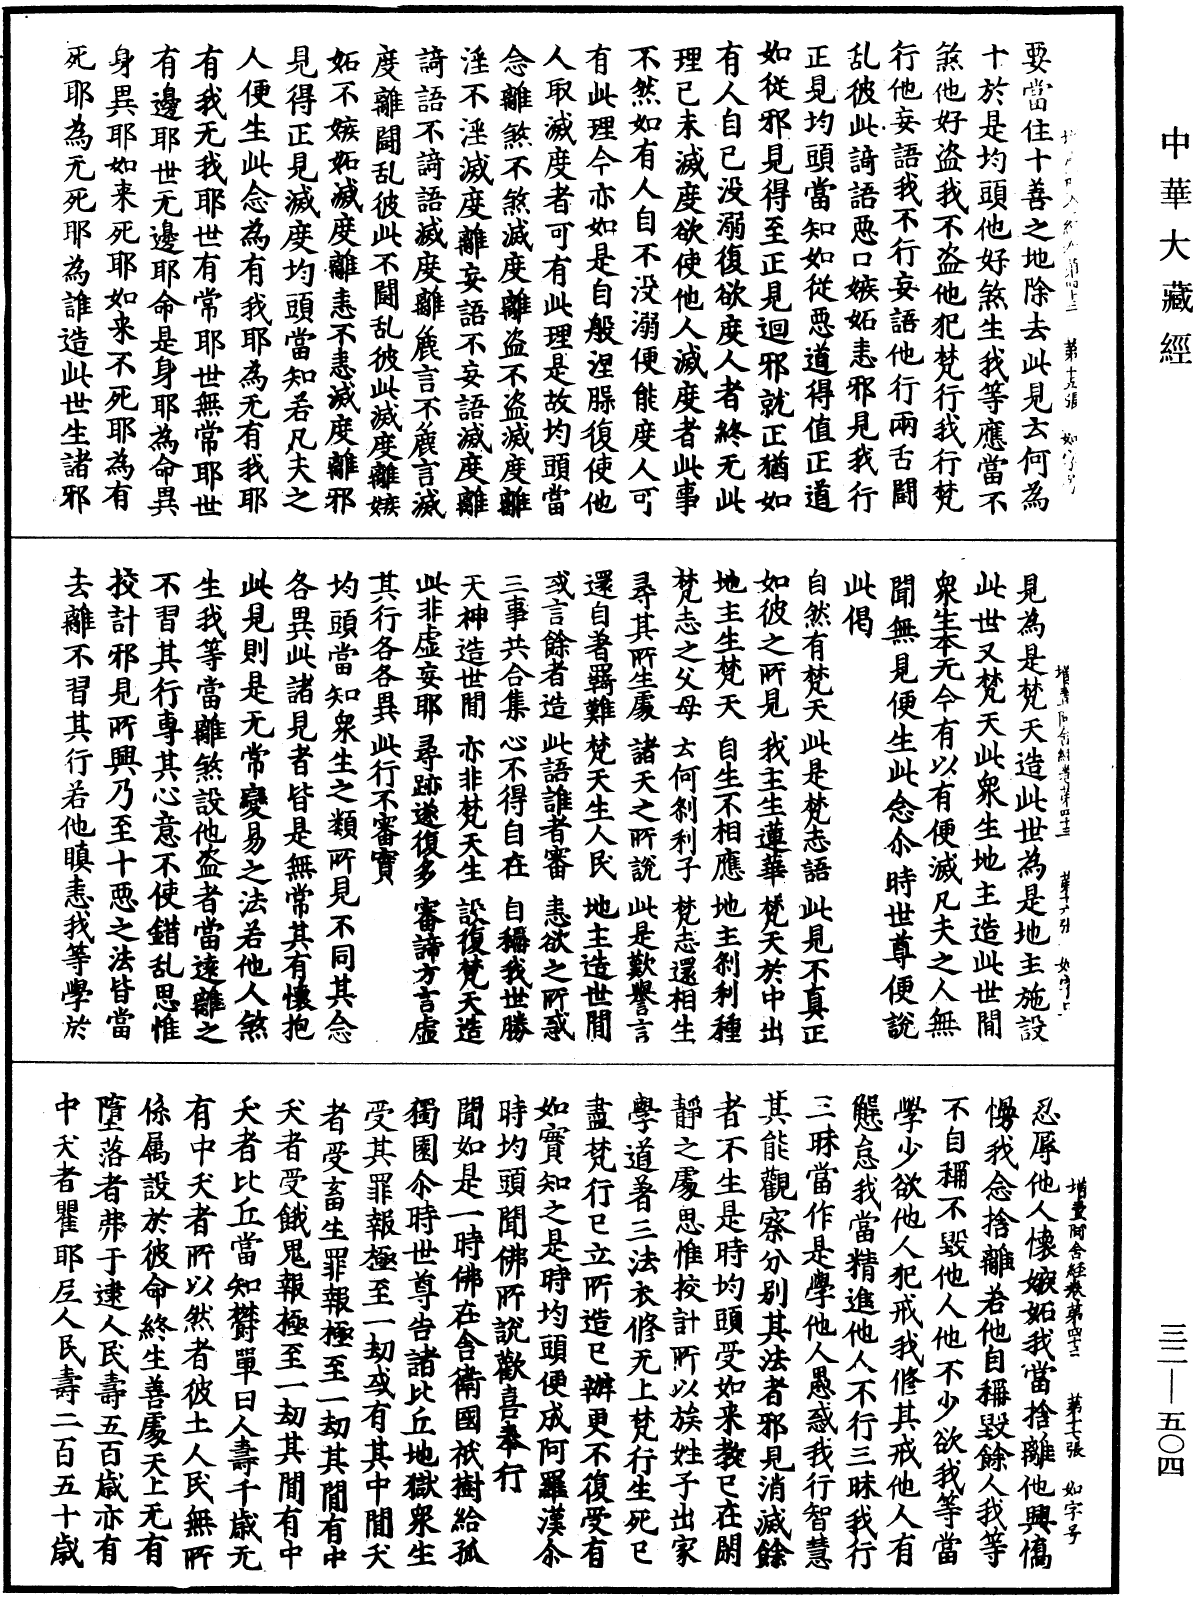 中華大藏經
要當住十善之地除去此見云何為
十於是均頭他好煞生我等應當不
煞他好盗我不盗他犯梵行我行梵
行他妄語我不行妄語他行兩舌鬪
乱彼此謟語惡口嫉妬恚邪見我行
正見均頭當知如從惡道得值正道
如從邪見得至正見迴邪就正猶如
有人自己没溺復欲度人者終无此
理已未滅度欲使他人滅度者此事
不然如有人自不没溺便能度人可
有此理今亦如是自般涅槃復使他
人取滅度者可有此理是故均頭當
念離煞不煞滅度離盗不盗滅度離
淫不淫滅度離妄語不妄語滅度離
謟語不謟語滅度離麁言不麁言滅
度離鬪乱彼此不鬪乱彼此滅度離嫉
妬不嫉妬滅度離恚不恚滅度離邪
見得正見滅度均頭當知若凡夫之
人便生此念為有我耶為无有我耶
有我无我耶世有常耶世無常耶世
有邊耶世无邊耶命是身耶為命異
身異耶如来死耶如来不死耶為有
死耶為无死耶為誰造此世生諸邪
增壹阿含經卷第四十三　第十六張　如字号
見為是梵天造此世為是地主施設
此世又梵天此衆生地主造此世間
衆生本无今有以有便滅凡夫之人無
聞無見便生此念尒時世尊便說
此偈
自然有梵天　此是梵志語　此見不真正
如彼之所見　我主生蓮華　梵天於中出
地主生梵天　自生不相應　地主剎利種
梵志之父母　云何剎利子　梵志還相生
尋其所生處　諸天之所說　此是歎譽言
還自著羇難　梵天生人民　地主造世間
或言餘者造　此語誰者審　恚欲之所惑
三事共合集　心不得自在　自稱我世勝
天神造世間　亦非梵天生　設復梵天造
此非虚妄耶　尋跡遂復多　審諦方言虚
其行各各異　此行不審實
均頭當知衆生之類所見不同其念
各異此諸見者皆是無常其有懷抱
此見則是无常變易之法若他人煞
生我等當離煞設他盗者當遠離之
不習其行專其心意不使錯乱思惟
挍計邪見所興乃至十惡之法皆當
去離不習其行若他瞋恚我等學於
增壹阿含經卷第四十三　第十七張　如字号
忍辱他人懷嫉妬我當捨離他興憍
慢我念捨離若他自稱毀餘人我等
不自稱不毀他人他不少欲我等當
學少欲他人犯戒我修其戒他人有
懈怠我當精進他人不行三昧我行
三昧當作是學他人愚惑我行智慧
其能觀察分別其法者邪見消滅餘
者不生是時均頭受如来教已在閑
靜之處思惟挍計所以族姓子出家
學道著三法衣修无上梵行生死已
盡梵行已立所造已辦更不復受有
如實知之是時均頭便成阿羅漢尒
時均頭聞佛所說歡喜奉行
聞如是一時佛在舍衛國祇樹給孤
獨園尒時世尊告諸比丘地獄衆生
受其罪報極至一劫或有其中間夭
者受畜生罪報極至一劫其間有中
夭者受餓鬼報極至一劫其間有中
夭者比丘當知欝單曰人壽千歲无
有中夭者所以然者彼土人民無所
係属設於彼命終生善處天上无有
墮落者弗于逮人民壽五百歲亦有
中夭者瞿耶尼人民壽二百五十歲
三二—五〇四